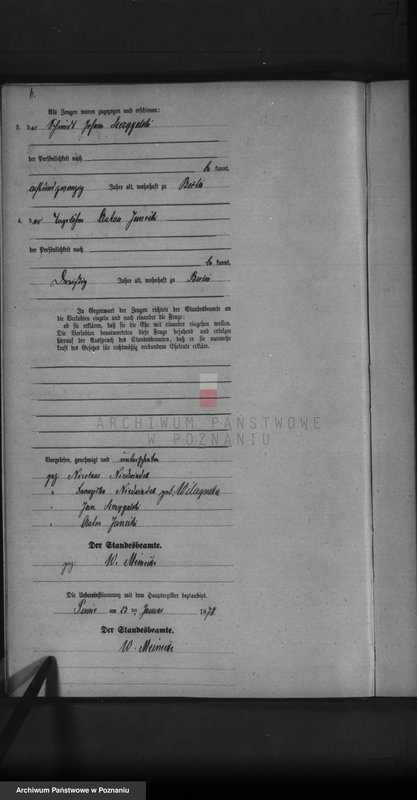 Als Zeugen waren zugezogen und erschienen:
3. der Schmidt Johann
der Persönlichkeit nach
be kannt,
achtundzwanzig Jahre alt, wohnhaft zu Berlin
4. der Anton
der Persönlichkeit nach
be kannt,
Dreißig Jahre alt, wohnhaft zu Berlin
In Gegenwart der Zeugen richtete der Standesbeamte an
die Verlobten einzeln und nach einander die Frage:
ob sie erklären, daß sie die Ehe mit einander eingehen wollen.
Die Verlobten beantworteten diese Frage bejahend und erfolgte
hierauf der Ausspruch des Standesbeamten, daß er sie nunmehr
kraft des Gesetzes für rechtmäßig verbundene Eheleute erkläre.
ARCHIWUM PAŃSTWOWE
W POZNANIU
Vorgelesen, genehmigt und unterschrieben
gez. Nicolaus
" geb.
" Jan
" Anton
Der Standesbeamte.
gez. W. Meinecke
Die Uebereinstimmung mit dem Hauptregister beglaubigt.
am ten Januar 1878
Der Standesbeamte.
W. Meinecke
Archiwum Państwowe w Poznaniu